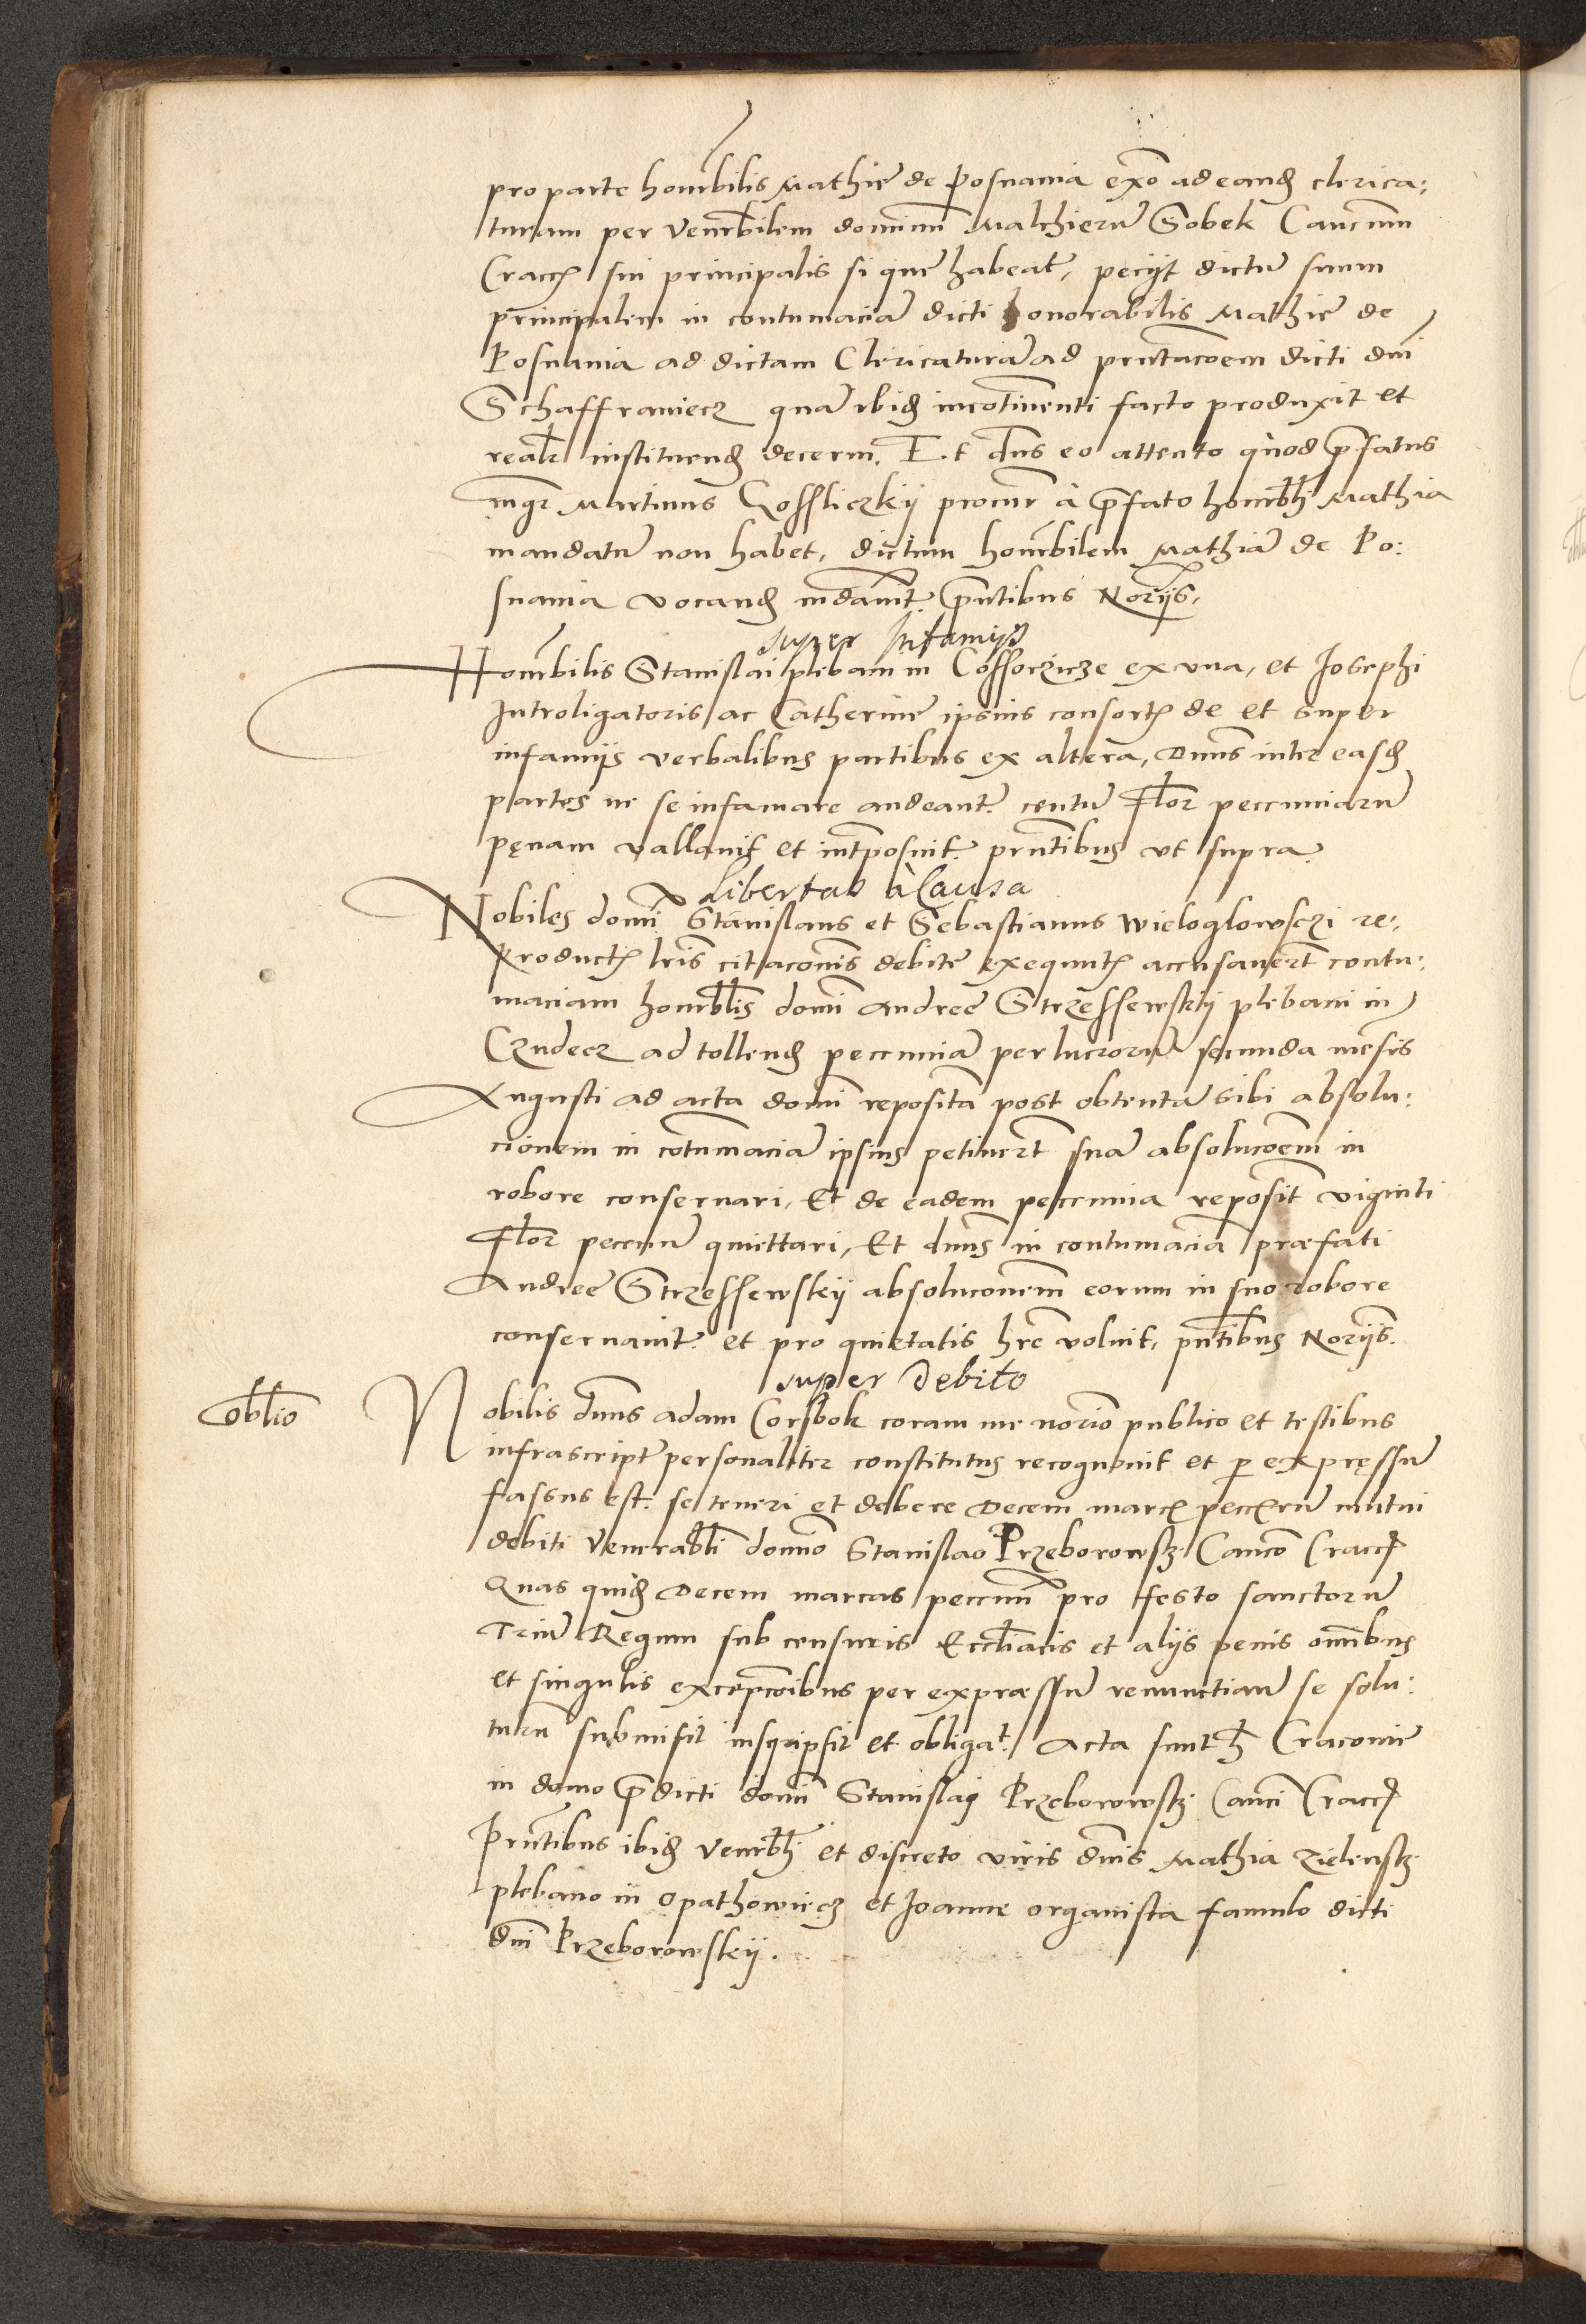 pro parte honorbilis Mathie de Posnania exō ad eand clerica:
turam per Venerbilem dominū Malchierū Sobek Canonm
Cracc sui principalis si quē habeat, peciit dictū suum
principalem in contumaciā dicti honorabilis Mathie de
Posnania ad dictam Clericaturā ad prntacoem dicti dni
Schaffraniecz quā ibid incotinenti facto produxit et
realr instituend decerni. Et dns eo attento quod prfatus
mgr Martinus Gosliczkij procur à prfato honorbli Mathia
mandatū non habet, dictum honorbilem Mathiā de Po:
snania vocand mdavit prntibus Norijs.
super Infamijs
Honorbilis Stanislai plebani in Cossoczicze ex una, et Josephi
Introligatoris ac Catherine ipsius consort de et super
infamijs verbalibus partibus ex altera, Dnus inter easd
partes ne se infamare audeant centū Flor peccuniarū
penam vallavit et intrposuit prntibus ut supra.
Libertas à Causa
Nobiles domi Stanislaus et Sebastianus Wieloglowsczi re:
product lris citaconis debite exequut accusavert contu:
maciam honorblis domi Andree Strzessewskij plebani in
Czudecz ad tollend peccuniā per lucrorū secunda mesis
Augusti ad acta domi reposita post obtentā sibi absolu:
cionem in cotumaciā ipsius petivert suā absolucoem in
robore conservari, Et de eadem peccunia reposit viginti
Flor peccuniū quittari, Et dnus in contumaciā præfati
Andree Strzessewskij absoluconem eorum in suo robore
conservavit et pro quietatis hre voluit, pntibus Norijs.
super Debito
Oblio
Nobilis dnus Adam Corsbok coram me norio publico et testibus
infrascript personaliter constitutus recognovit et p expressū
fassus est se teneri et debere Decem marc peccrū mutui
debiti Venerabli domino Stanislao Przeborowsk Canco Cracc
Quas quid Decem marcas peccuni pro festo sanctorū
Triū Regum sub censuris Eccliacis et alijs penis omibus
et singulis excepcoibus per expræssū renunctian se solu:
turū submisit inscripsit et obligat. Acta sunt h Cracovie
in domo prdicti domi Stanislaj Przeborowsk Canci Cracc
Prntibus ibid Venerbli et discreto viris dnis Mathia Zielensk
plebano in Opathowiecz et Joanne organista famulo dicti
dni Przeborowskij.